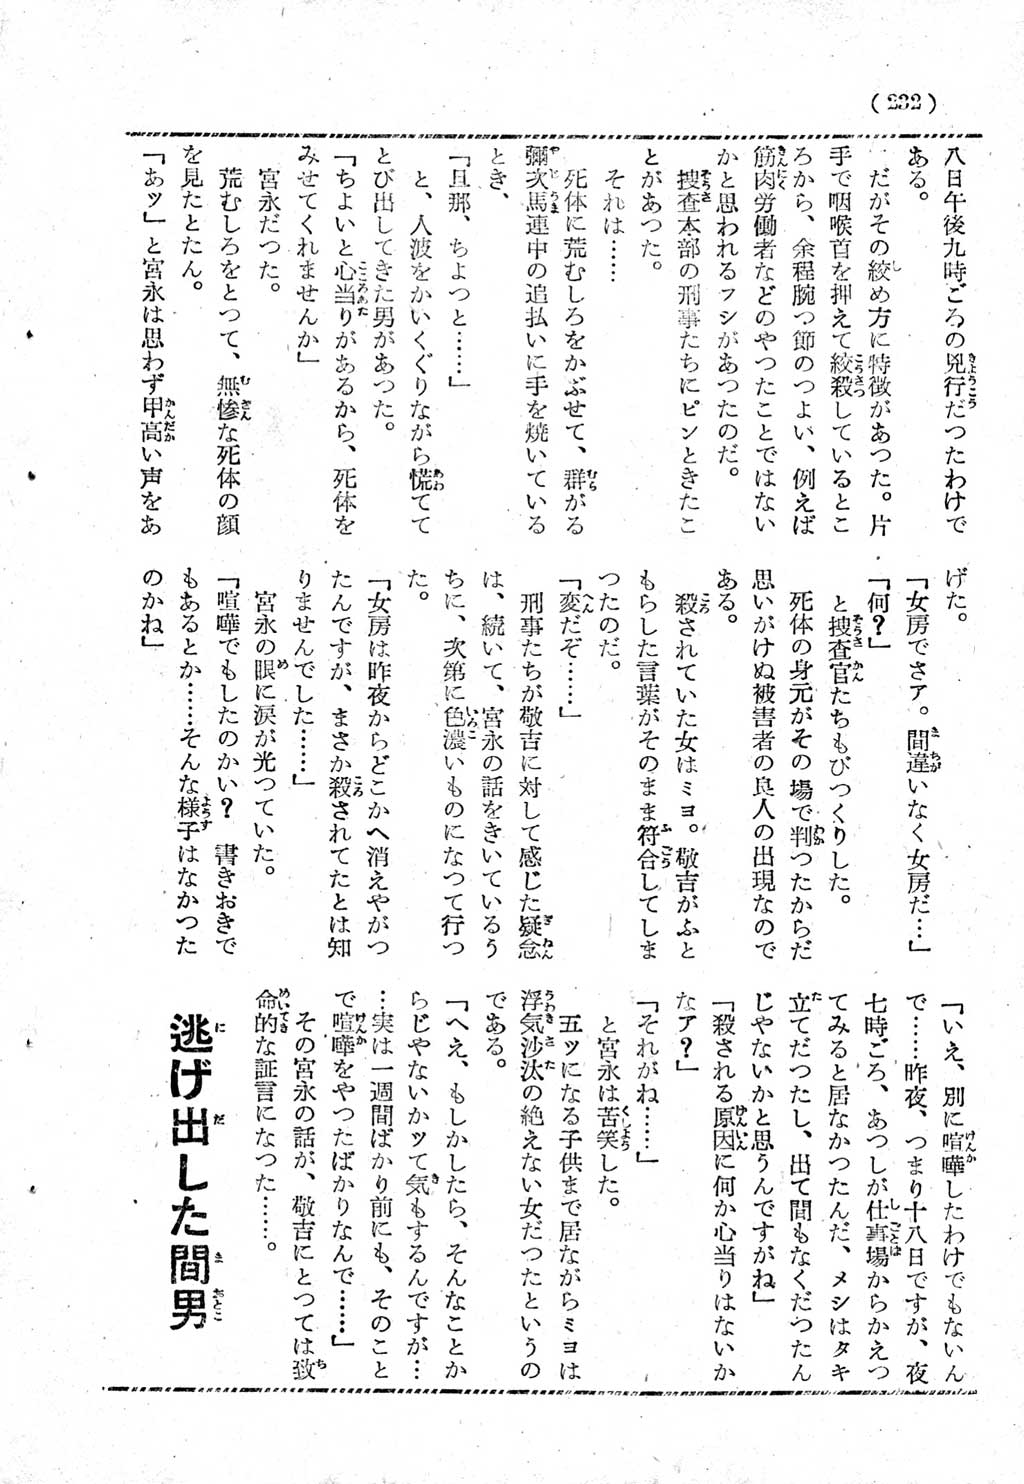 (232)
八日午後九時ごろの兇行だつたわけで
ある。
　だがその絞め方に特徴があつた。片
手で咽喉首を押えて絞殺しているとこ
ろから、余程腕っ節のつよい、例えば
筋肉労働者などのやつたことではない
かと思われるフシがあつたのだ。
　捜査本部の刑事たちにピンときたこ
とがあつた。
　それは……
　死体に荒むしろをかぶせて、群がる
彌次馬連中の追払いに手を焼いている
とき、
「旦那、ちよつと……」
　と、人波をかいくぐりながら慌てて
とび出してきた男があつた。
「ちよいと心当りがあるから、死体を
みせてくれませんか」
　宮永だつた。
　荒むしろをとつて、無惨な死体の顔
を見たとたん。
「あッ」と宮永は思わず甲高い声をあ
げた。
「女房でさア。間違いなく女房だ…」
「何？」
　と捜査官たちもびつくりした。
　死体の身元がその場で判つたからだ
思いがけぬ被害者の良人の出現なので
ある。
　殺されていた女はミヨ。敬吉がふと
もらした言葉がそのまま符合してしま
つたのだ。
「変だぞ……」
　刑事たちが敬吉に対して感じた疑念
は、続いて、宮永の話をきいているう
ちに、次第に色濃いものになつて行つ
た。
「女房は昨夜からどこかへ消えやがつ
たんですが、まさか殺されてたとは知
りませんでした……」
　宮永の眼に涙が光つていた。
「喧嘩でもしたのかい？　書きおきで
もあるとか……そんな様子はなかつた
のかね」
「いえ、別に喧嘩したわけでもないん
で……昨夜、つまり十八日ですが、夜
七時ごろ、あつしが仕事場からかえつ
てみると居なかつたんだ、メシはタキ
立てだつたし、出て間もなくだつたん
じやないかと思うんですがね」
「殺される原因に何か心当りはないか
なア？」
「それがね……」
　と宮永は苦笑した。
　五ッになる子供まで居ながらミヨは
浮気沙汰の絶えない女だつたというの
である。
「へえ、もしかしたら、そんなことか
らじやないかッて気もするんですが…
…実は一週間ばかり前にも、そのこと
で喧嘩をやつたばかりなんで……」
　その宮永の話が、敬吉にとつては致
命的な証言になつた……。
逃げ出した間男